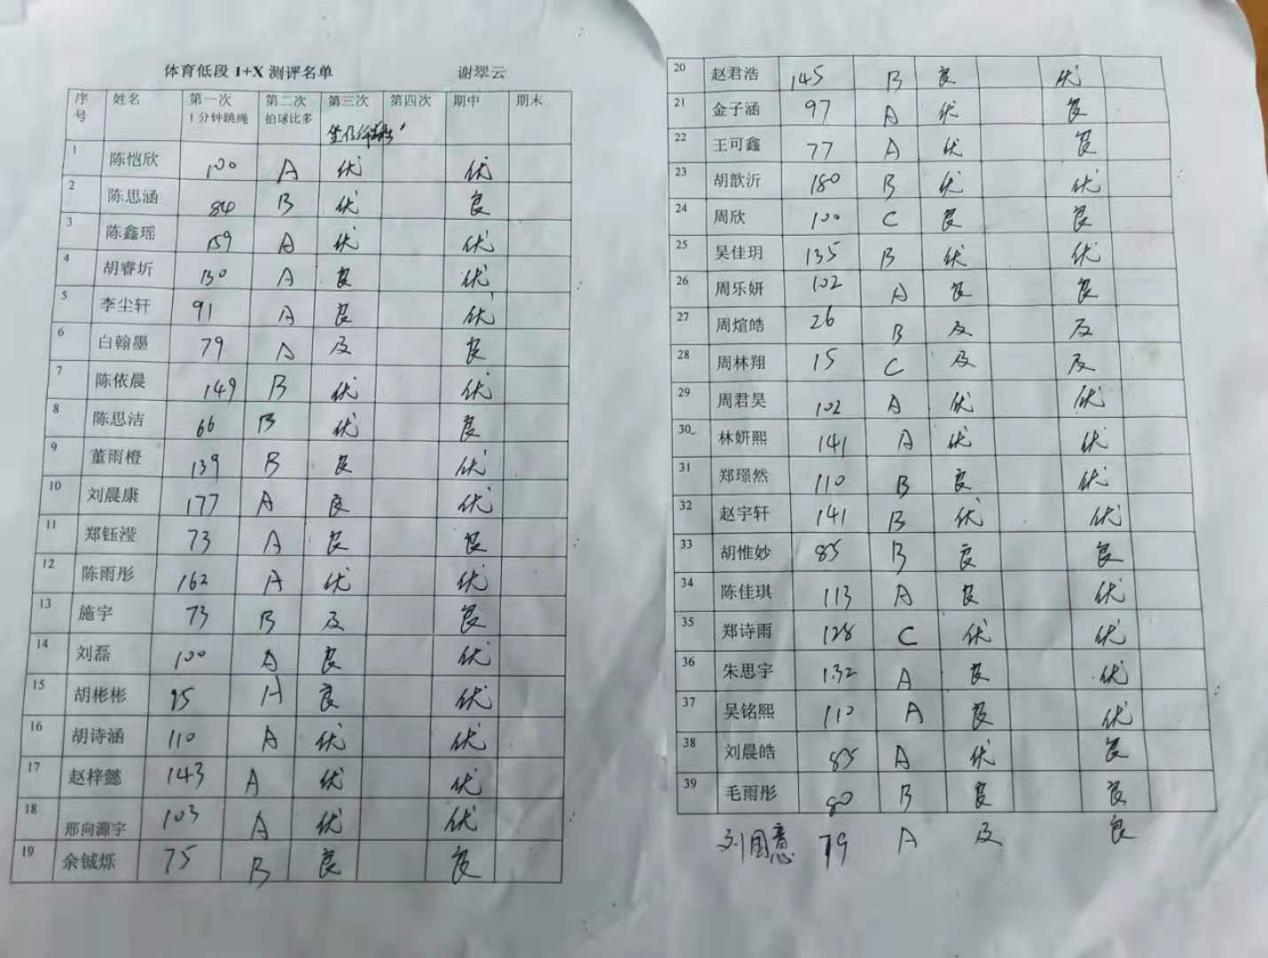 体育低段 1+X 测评名单 谢翠云
序号 姓名 第一次 1分钟跳绳 第二次 拍球比多 第三次 坐位体前屈 第四次 期中 期末
1 陈恺欣 100 A 优 优
2 陈思涵 84 B 优 良
3 陈鑫瑶 159 A 优 优
4 胡睿圻 130 A 良 优
5 李尘轩 91 A 良 优
6 白翰墨 79 A 及 良
7 陈依晨 149 B 优 优
8 陈思洁 66 B 优 良
9 董雨橙 139 B 良 优
10 刘晨康 177 A 良 优
11 郑钰滢 73 A 良 良
12 陈雨彤 162 A 优 优
13 施宇 73 B 及 良
14 刘磊 100 A 良 优
15 胡彬彬 95 A 良 优
16 胡诗涵 110 A 优 优
17 赵梓懿 143 A 优 优
18 邢向源宇 103 A 优 优
19 余铖烁 75 B 良 良
20 赵君浩 145 B 良 优
21 金子涵 97 A 优 良
22 王可鑫 77 A 优 良
23 胡歆沂 180 B 优 优
24 周欣 100 C 良 良
25 吴佳玥 135 B 优 优
26 周乐妍 102 A 良 良
27 周煊皓 26 B 及 及
28 周林翔 15 C 及 及
29 周君昊 102 A 优 优
30 林妍熙 141 A 优 优
31 郑璟然 110 B 良 优
32 赵宇轩 141 B 优 优
33 胡惟妙 85 B 良 良
34 陈佳琪 113 A 良 优
35 郑诗雨 128 C 优 优
36 朱思宇 132 A 良 优
37 吴铭熙 110 A 良 优
38 刘晨皓 85 A 优 良
39 毛雨彤 80 B 良 良
刘国意 79 A 及 良